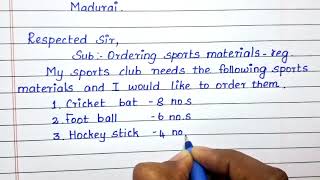 Madurai.
Respected Sir,
Sub:- Ordering sports materials - reg.
My sports club needs the following sports
materials and I would like to order them.
1. Cricket bat - 8 no.s
2. Foot ball - 6 no.s
3. Hockey stick - 4 no.